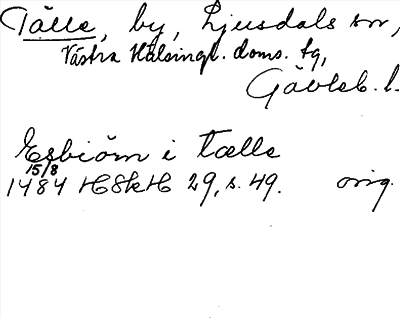 Tälle, by, Ljusdals sn,
Västra Hälsingl. doms. tg,
Gävleb. l.
Esbiörn i Tælle
15/8
1484 HSkH 29, s. 49. orig.